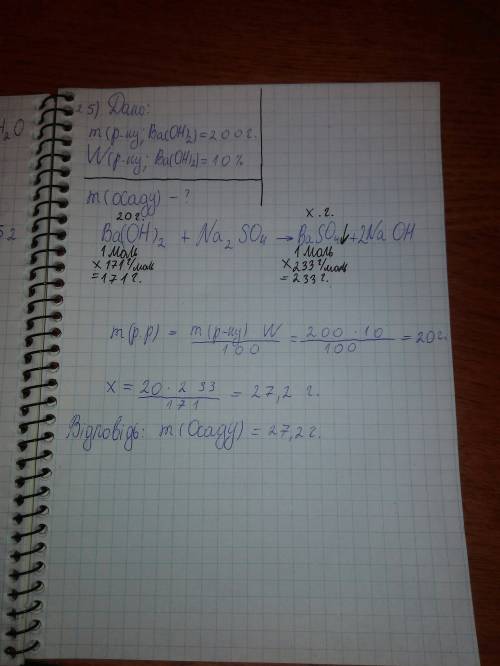 25). Дано:
m(р-ну; Ba(OH)2) = 200 г.
W(р-ну; Ba(OH)2) = 10%
m(осаду) - ?
20 г. x г.
Ba(OH)2 + Na2SO4 → BaSO4↓ + 2NaOH
1 моль 1 моль
x 171 г/моль x 233 г/моль
= 171 г. = 233 г.
m(р.р) = m(р-ну) W / 100 = 200 · 10 / 100 = 20 г.
x = 20 · 233 / 171 = 27,2 г.
Відповідь: m(Осаду) = 27,2 г.
H2O
52